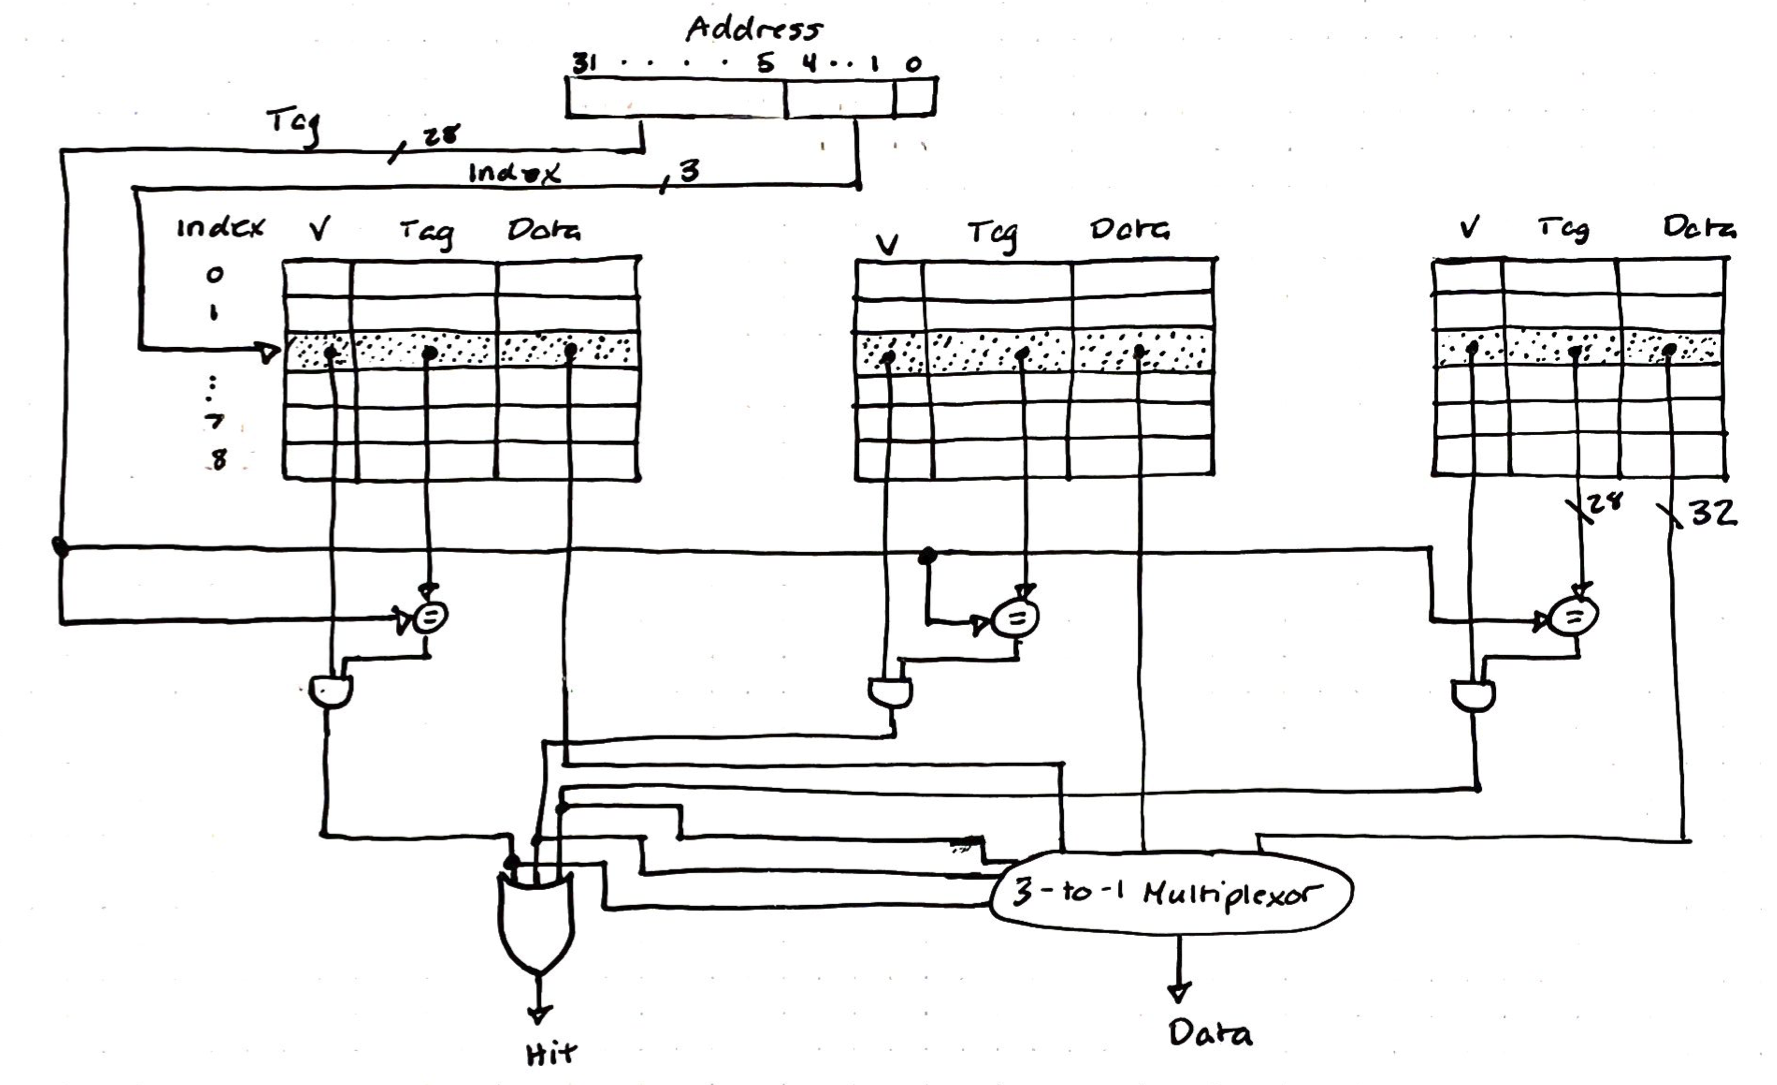 Address
31 . . . . 5 4 . . 1 0
Tag 28
Index 3
Index V Tag Data V Tag Data V Tag Data
0
1
⋮
7
8
28 32
= = =
3-to-1 Multiplexor
Hit
Data